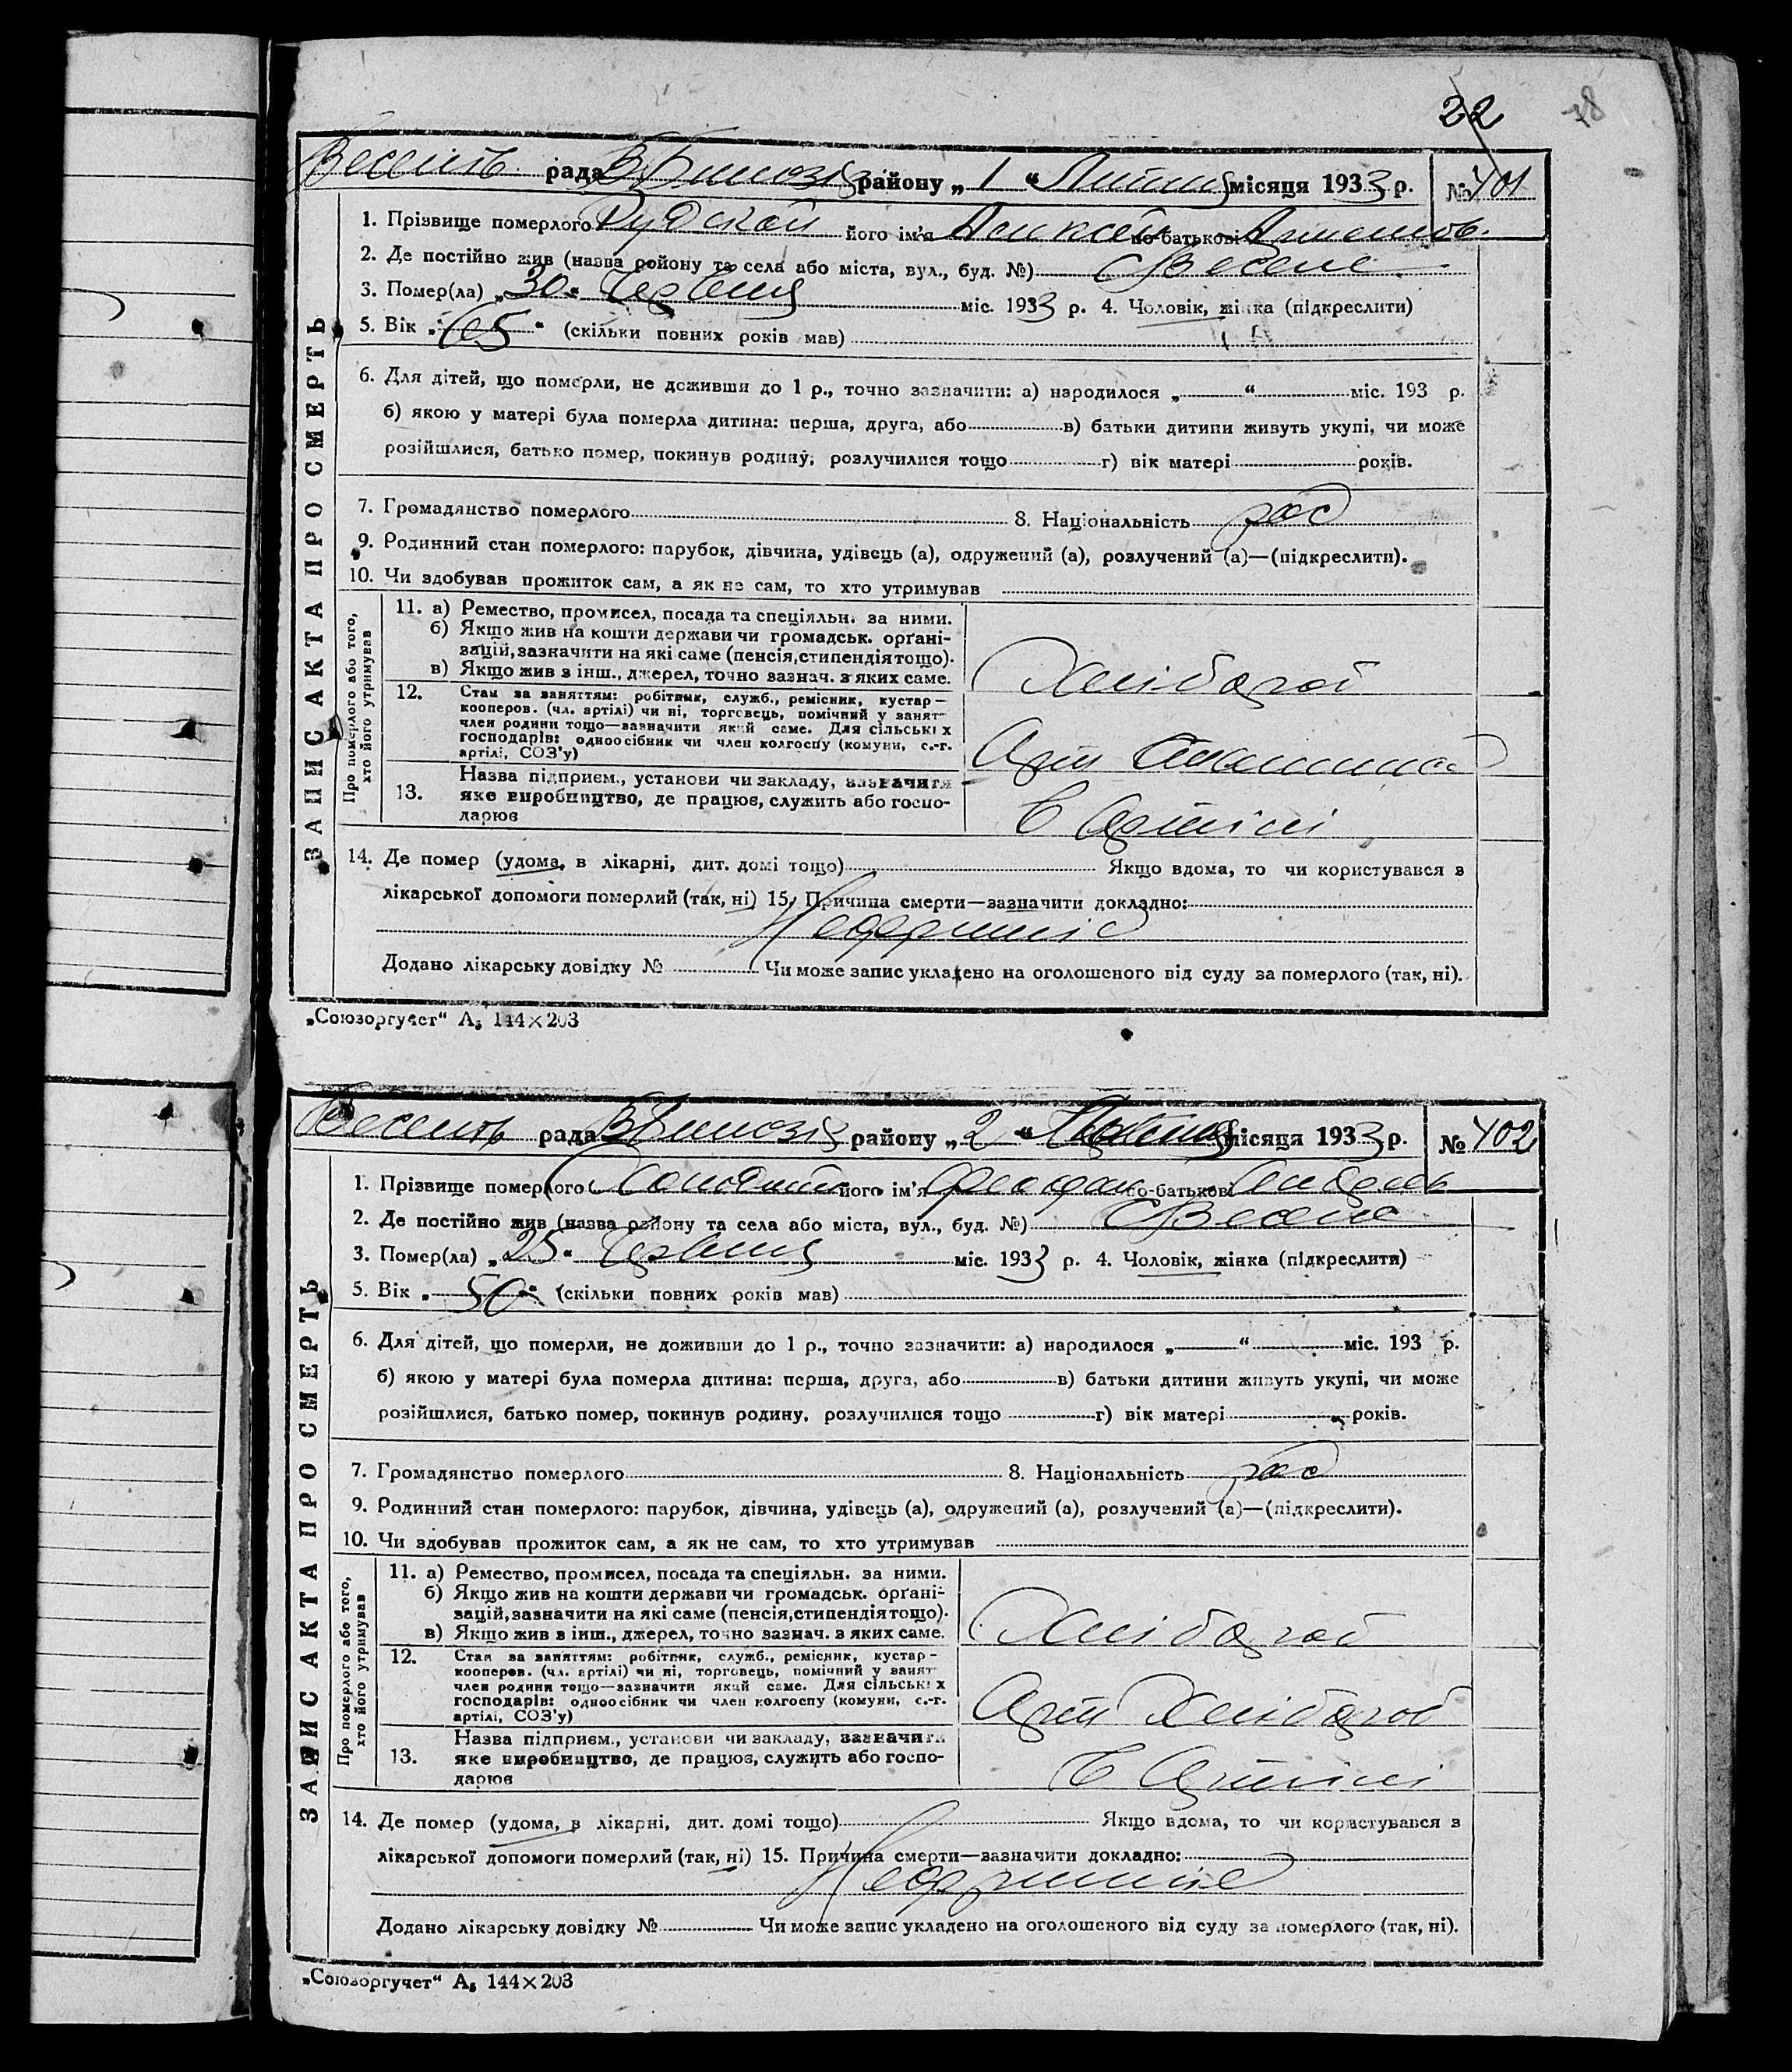 22 78
рада району „ 1 “ місяця 1933 р. № 401
1. Прізвище померлого його ім'я Алексей по-батькові
2. Де постійно жив (назва району та села або міста, вул., буд. №) с Веселе
3. Помер(ла) „ 30 “ Червня міс. 1933 р. 4. Чоловік, жінка (підкреслити)
5. Вік „ 65 “ (скільки повних років мав)
6. Для дітей, що померли, не доживши до 1 р., точно зазначити: а) народилося „ “ міс. 193 р.
б) якою у матері була померла дитина: перша, друга, або в) батьки дитини живуть укупі, чи може
розійшлися, батько помер, покинув родину, розлучилися тощо г) вік матері років.
7. Громадянство померлого 8. Національність рос
9. Родинний стан померлого: парубок, дівчина, удівець (а), одружений (а), розлучений (а)—(підкреслити).
10. Чи здобував прожиток сам, а як не сам, то хто утримував
ЗАПИС АКТА ПРО СМЕРТЬ
Про померлого або того,
хто його утримував
11. а) Ремество, промисел, посада та спеціяльн. за ними.
б) Якщо жив на кошти держави чи громадськ. орґані-
зацій, зазначити на які саме (пенсія, стипендія тощо).
в) Якщо жив з інш., джерел, точно зазнач. з яких саме.
Хлібороб
12. Стан за заняттям: робітник, служб., ремісник, кустар—
кооперов. (чл. артілі) чи ні, торговець, помічний у занят—
член родини тощо—зазначити який саме. Для сільських
господарів: одноосібник чи член колгоспу (комуни, с.-г.
артілі, СОЗ'у)
13. Назва підприєм., установи чи закладу, зазначити
яке виробництво, де працює, служить або госпо-
дарює
В Артілі
14. Де помер (удома, в лікарні, дит. домі тощо) Якщо вдома, то чи користувався з
лікарської допомоги померлий (так, ні) 15. Причина смерти—зазначити докладно:
Додано лікарську довідку № Чи може запис укладено на оголошеного від суду за померлого (так, ні).
„Союзоргучет“ А₅ 144×203
рада району „ 2 “ місяця 1933 р. № 402
1. Прізвище померлого його ім'я по-батькові
2. Де постійно жив (назва району та села або міста, вул., буд. №) с Веселе
3. Помер(ла) „ 25 “ Червня міс. 1933 р. 4. Чоловік, жінка (підкреслити)
5. Вік „ 50 “ (скільки повних років мав)
6. Для дітей, що померли, не доживши до 1 р., точно зазначити: а) народилося „ “ міс. 193 р.
б) якою у матері була померла дитина: перша, друга, або в) батьки дитини живуть укупі, чи може
розійшлися, батько помер, покинув родину, розлучилися тощо г) вік матері років.
7. Громадянство померлого 8. Національність рос
9. Родинний стан померлого: парубок, дівчина, удівець (а), одружений (а), розлучений (а)—(підкреслити).
10. Чи здобував прожиток сам, а як не сам, то хто утримував
ЗАПИС АКТА ПРО СМЕРТЬ
Про померлого або того,
хто його утримував
11. а) Ремество, промисел, посада та спеціяльн. за ними.
б) Якщо жив на кошти держави чи громадськ. орґані-
зацій, зазначити на які саме (пенсія, стипендія тощо).
в) Якщо жив з інш., джерел, точно зазнач. з яких саме.
Хлібороб
12. Стан за заняттям: робітник, служб., ремісник, кустар—
кооперов. (чл. артілі) чи ні, торговець, помічний у занят—
член родини тощо—зазначити який саме. Для сільських
господарів: одноосібник чи член колгоспу (комуни, с.-г.
артілі, СОЗ'у)
Арт Хлібороб
13. Назва підприєм., установи чи закладу, зазначити
яке виробництво, де працює, служить або госпо-
дарює
В Артілі
14. Де помер (удома, в лікарні, дит. домі тощо) Якщо вдома, то чи користувався з
лікарської допомоги померлий (так, ні) 15. Причина смерти—зазначити докладно:
Додано лікарську довідку № Чи може запис укладено на оголошеного від суду за померлого (так, ні).
„Союзоргучет“ А₅ 144×203